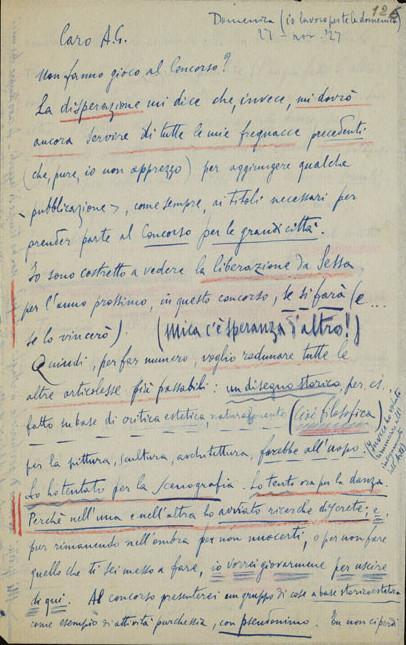 126
Domenica (io lavoro per te la domenica)
27 - nov. '27
Caro A.G.
Non fanno gioco al Concorso?
La disperazione mi dice che, invece, mi dovrò
ancora servire di tutte le mie fregnacce precedenti
(che, pure, io non apprezzo) per aggiungere qualche
pubblicazione, come sempre, ai titoli necessari per
prender parte al Concorso per le grandi città.
Io sono costretto a vedere la liberazione da Sessa,
per l'anno prossimo, in questo concorso, se si farà (e...
se lo vincerò). (Mica c'è speranza d'altro!)
Quindi, per far numero, voglio radunare tutte le
altre articolesse più passabili: un disegno storico, per es.
fatto su base di critica estetica, naturalmente (cioè filosofica)
per la pittura, scultura, architettura, farebbe all'uopo.
Lo ho tentato per la scenografia. Lo tento ora per la danza.
Perchè nell'una e nell'altra ho avviato ricerche discrete; e,
pur rimanendo nell'ombra per non nuocerti, o per non fare
quello che ti sei messo a fare, io vorrei giovarmene per uscire
di qui. Al concorso presenterei un gruppo di cose a base storico estetica
come esempio di attività purchessia, con pseudonimo. Tu non ci perdi